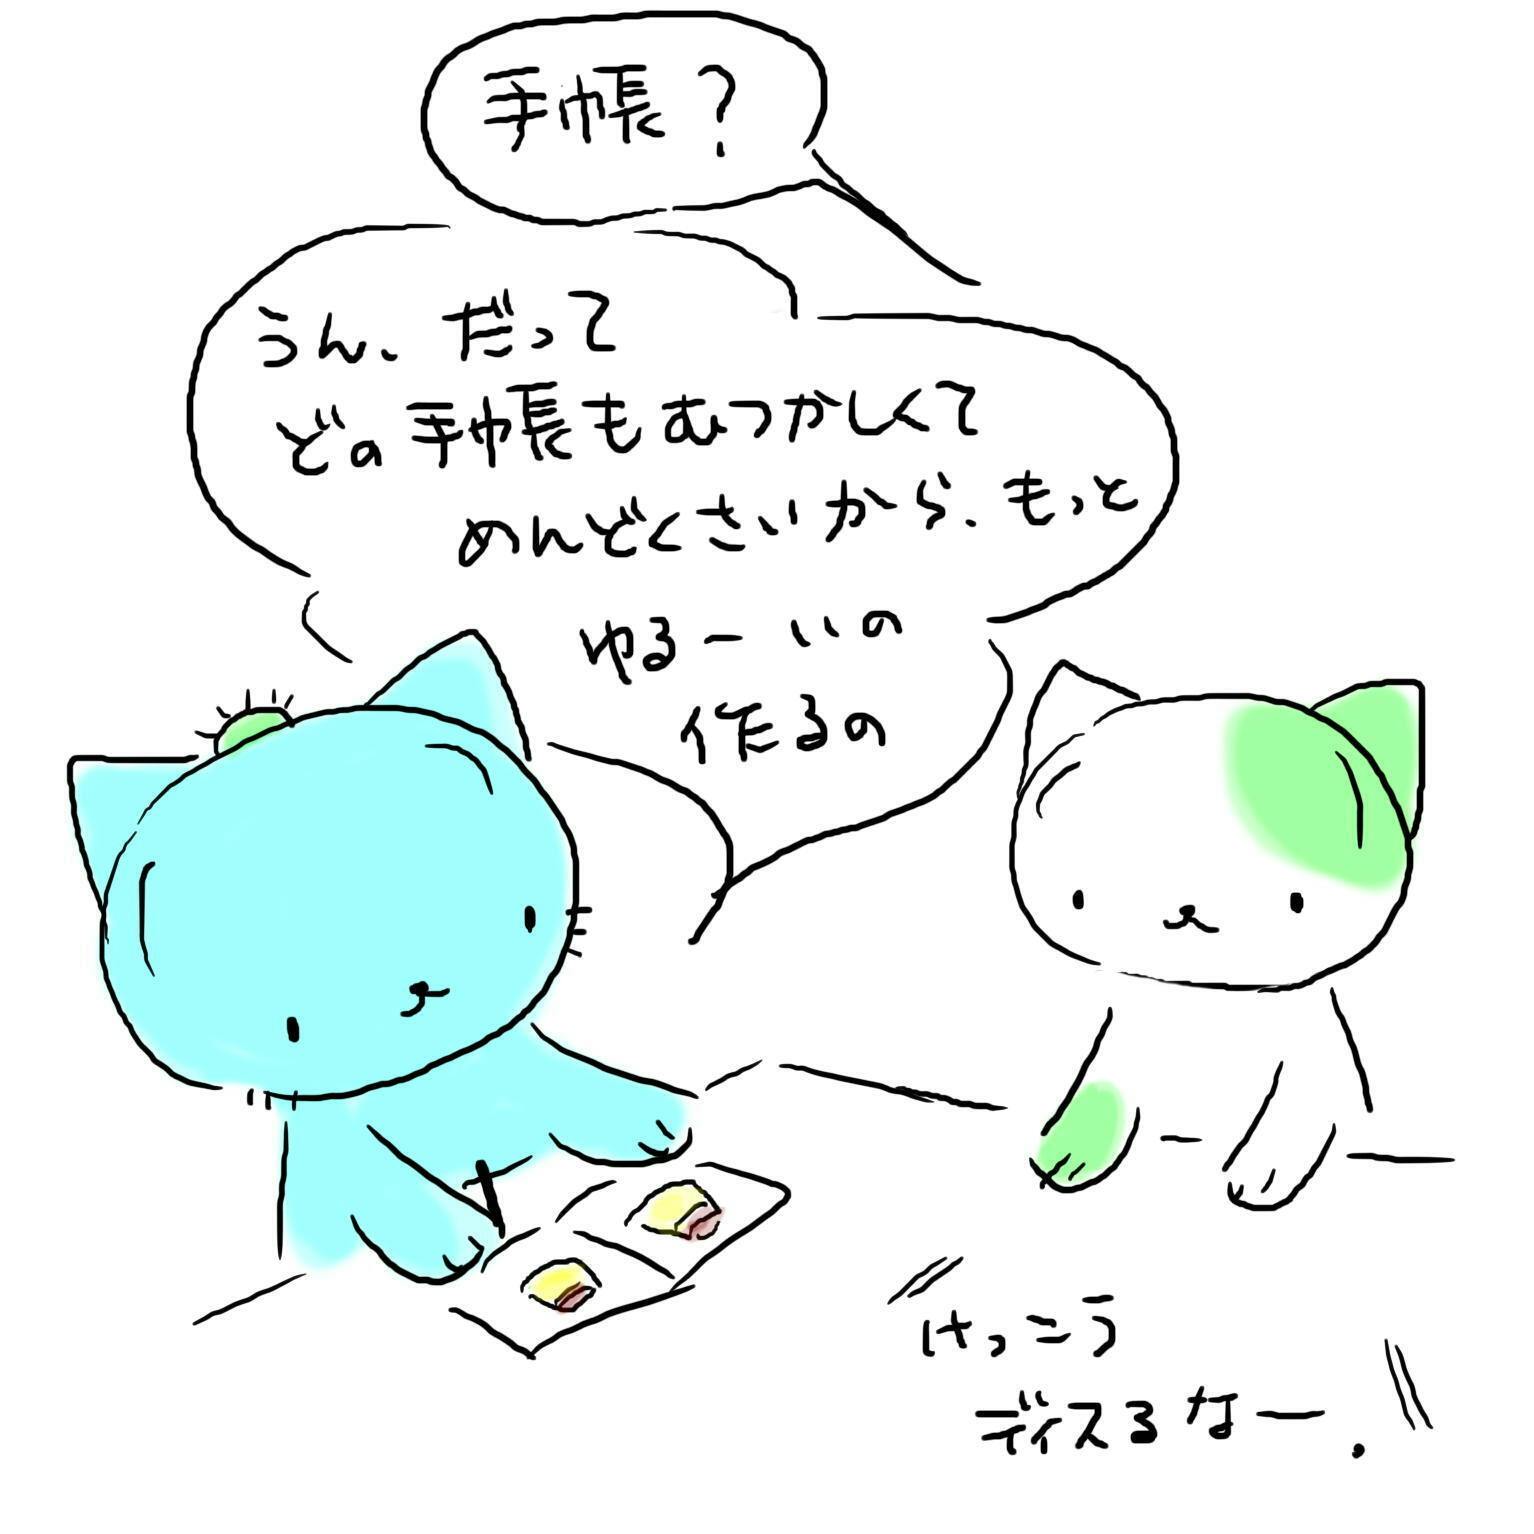 手帳？
うん、だって
どの手帳もむつかしくて
めんどくさいから、もっと
ゆるーいの
作るの
けっこう
ディスるなー。